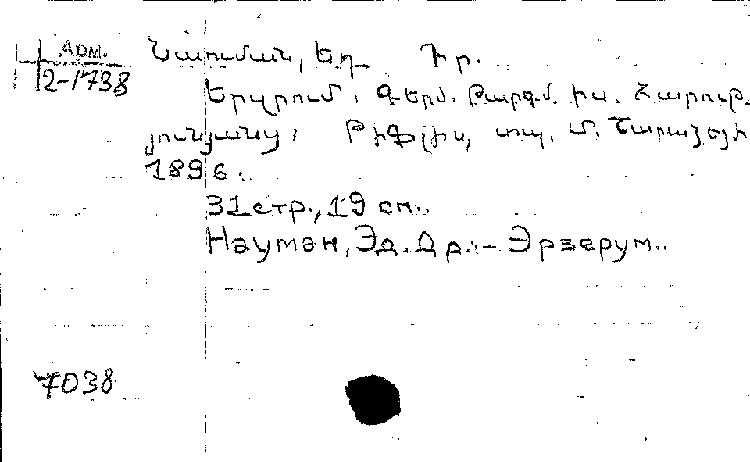 Арм.
2-1738
Նաուման, Եդ. Դր.
Երզրում. Գերմ. թարգմ. Իս. Հարութ.
յունյանց: Թիֆլիս, տպ. Մ. Շարաձեի
1896.
31 стр., 19 см.
Науман, Эд. Др. – Эрзерум..
7038